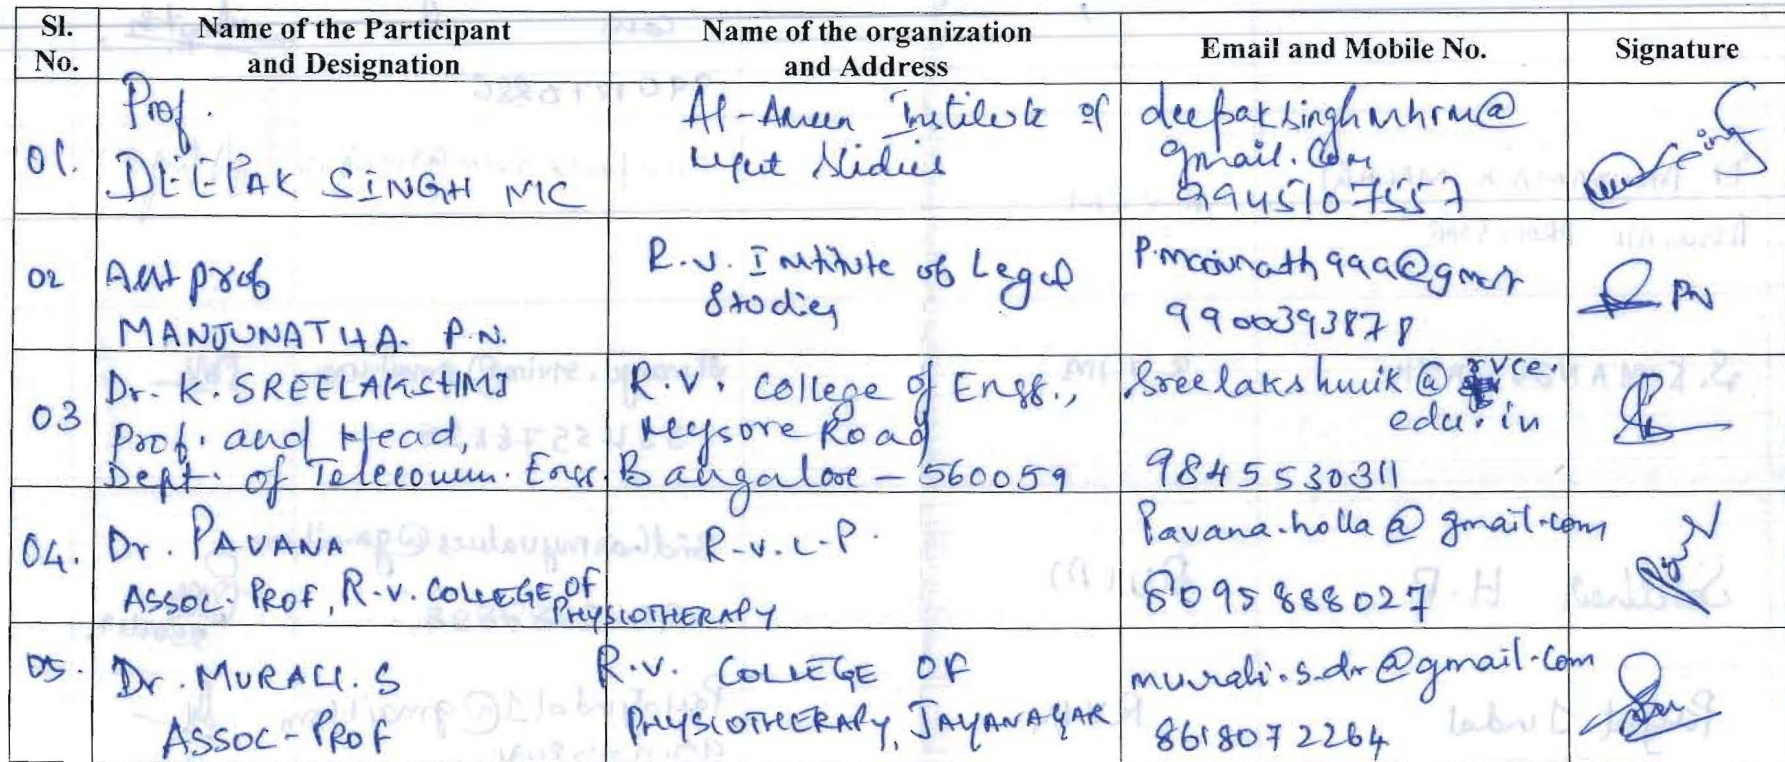 Sl. No. Name of the Participant and Designation Name of the organization and Address Email and Mobile No. Signature
01. Prof. DEEPAK SINGH MC Al-Ameen Institute of Mgmt Studies deepaksinghmhrm@gmail.com 9945107557
02 Asst prof MANJUNATHA. P.N. R.V. Institute of Legal Studies 9900393878 PN
03 Dr. K. SREELAKSHMI Prof. and Head, Dept. of Telecomm. Engg. R.V. College of Engg., Mysore Road Bangalore - 560059 Sreelakshmik@rvce.edu.in 9845530311
04. Dr. PAVANA ASSOC. PROF, R.V. COLLEGE OF PHYSIOTHERAPY R.V.C.P. Pavana.holla@gmail.com 8095888027
05. Dr. MURALI. S ASSOC-PROF R.V. COLLEGE OF PHYSIOTHERAPY, JAYANAGAR murali.s.dr@gmail.com 8618072264